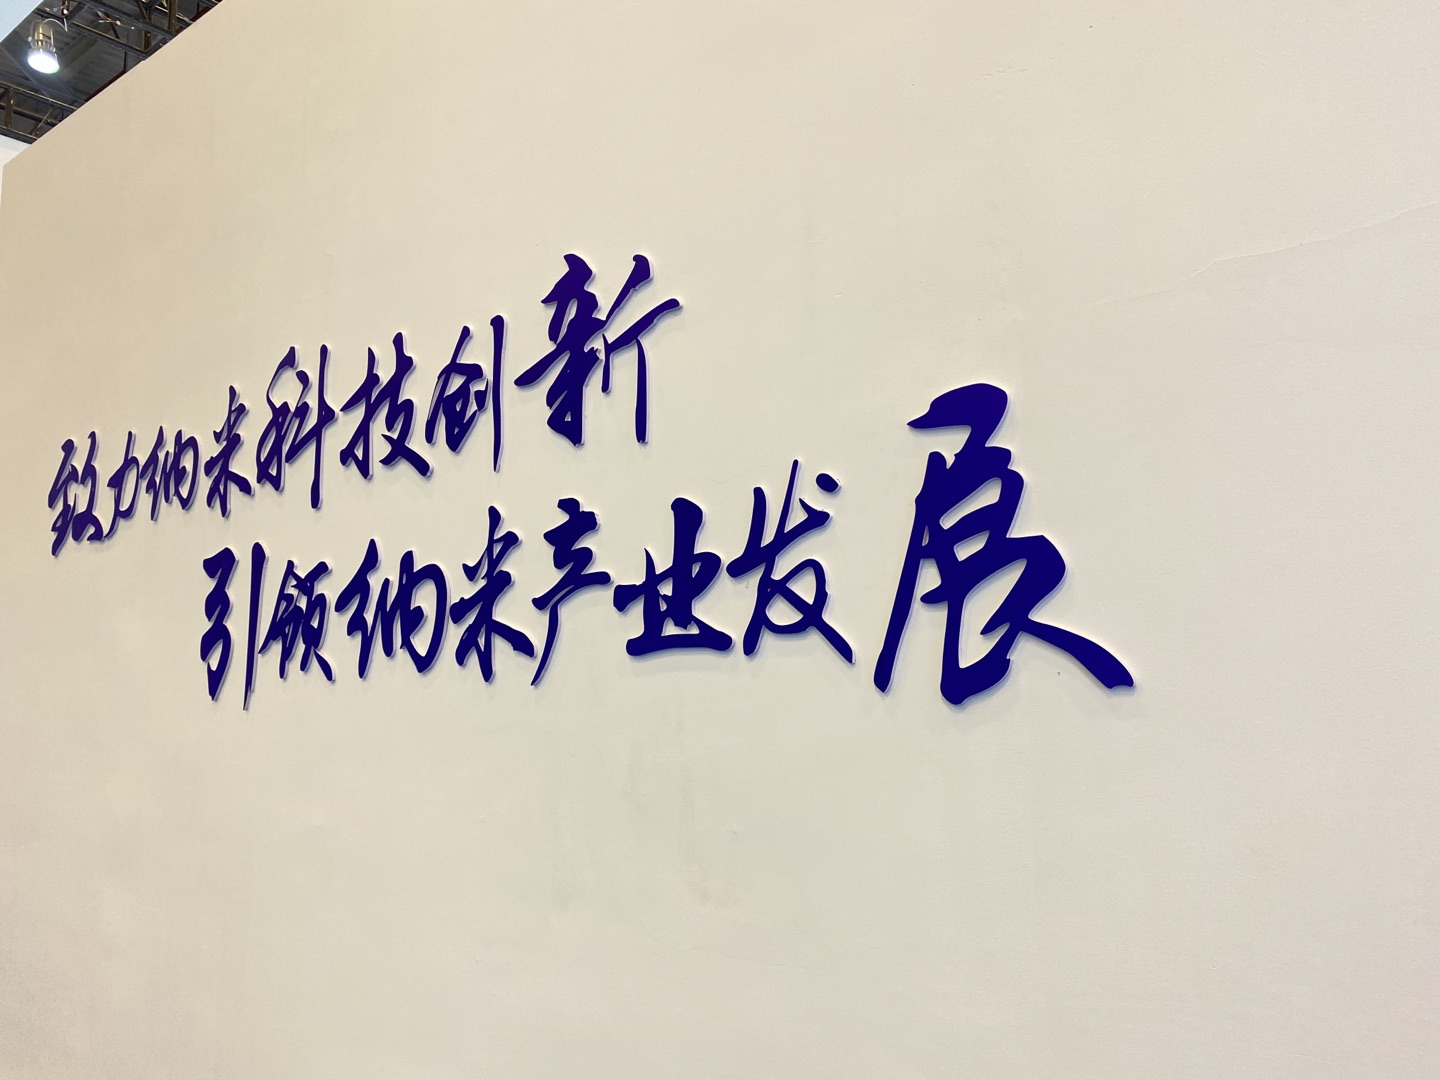 致力纳米科技创新
引领纳米产业发展